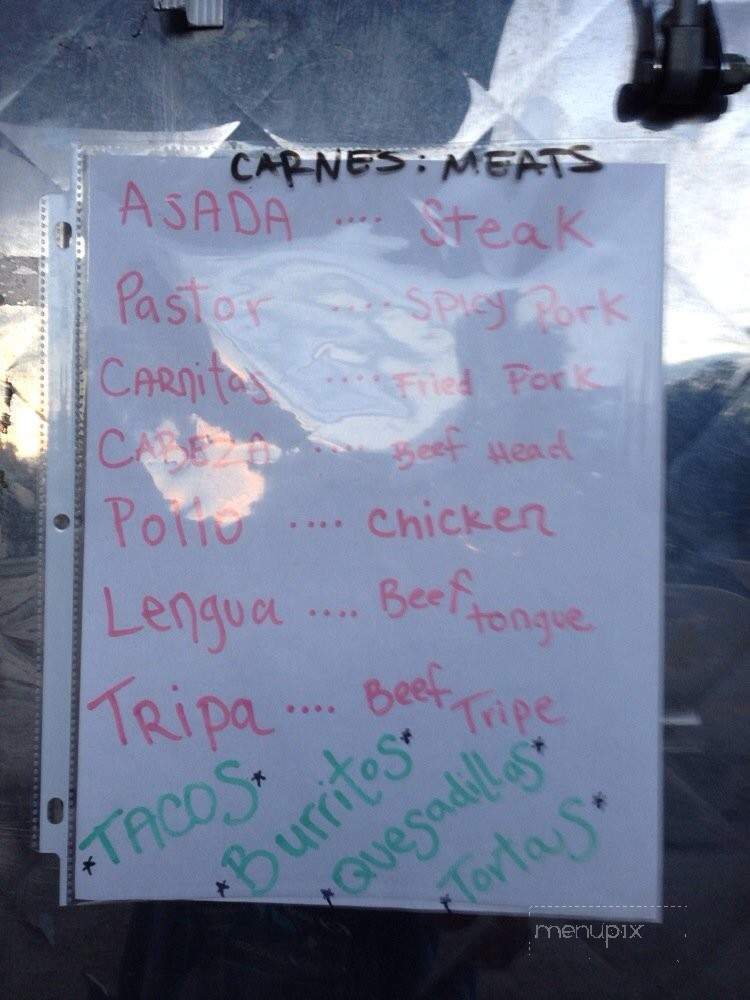 CARNES: MEATS
ASADA .... Steak
Pastor .... Spicy Pork
CARnitas .... Fried Pork
CABEZA .... Beef Head
Pollo .... chicken
Lengua .... Beef tongue
TRipa .... Beef Tripe
*TACOS*
*Burritos*
*Quesadillas*
*Tortas*
menupix